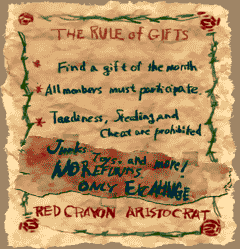 THE RULE of GIFTS
Find a gift of the month
All members must participate.
Tardiness, Stealing and
Cheat are prohibited
Junks, Toys, and more!
NO REFUNDS
ONLY EXCHANGE
RED CRAYON ARISTOCRAT